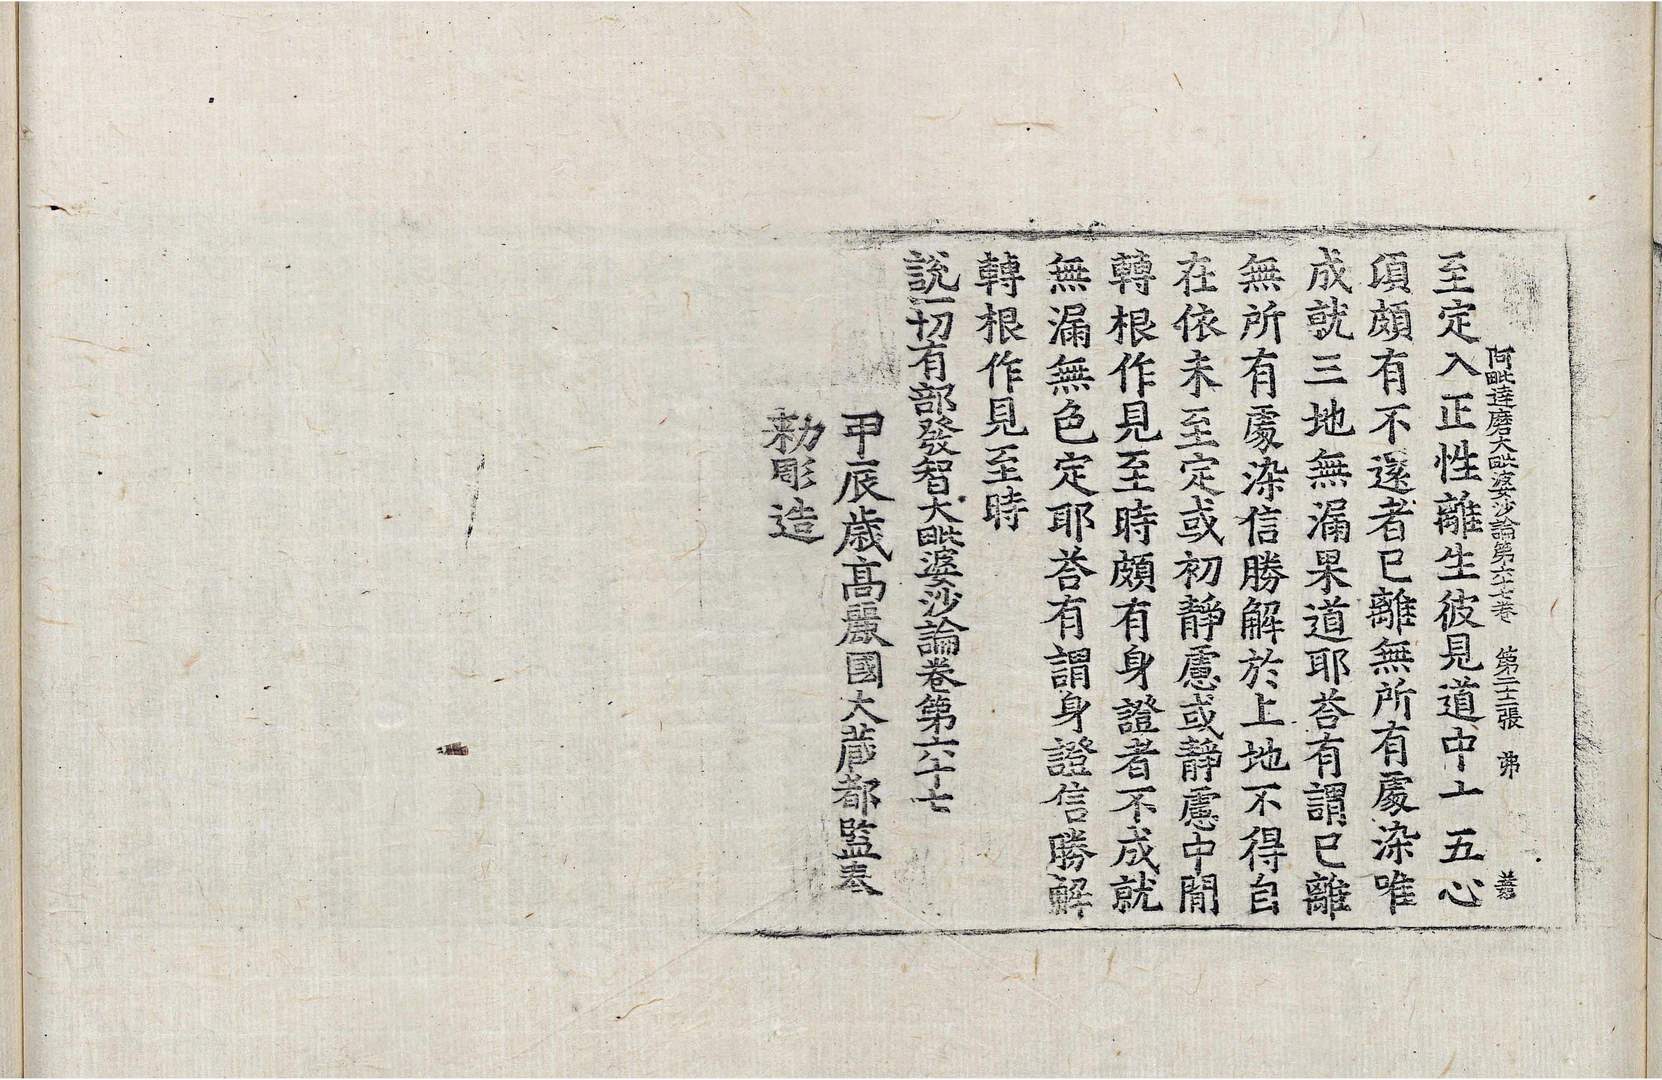 阿毗達磨大毗婆沙論第六十七卷 第二十三張 弗
至定入正性離生彼見道中十五心
湏頗有不還者已離無所有處染唯
成就三地無漏果道耶荅有謂已離
無所有處染信勝解於上地不得自
在依未至定或初靜慮或靜慮中閒
轉根作見至時頗有身證者不成就
無漏無色定耶荅有謂身證信勝解
轉根作見至時
說一切有部發智大毗婆沙論卷第六十七
甲辰歲高麗國大藏都監奉
勅彫造